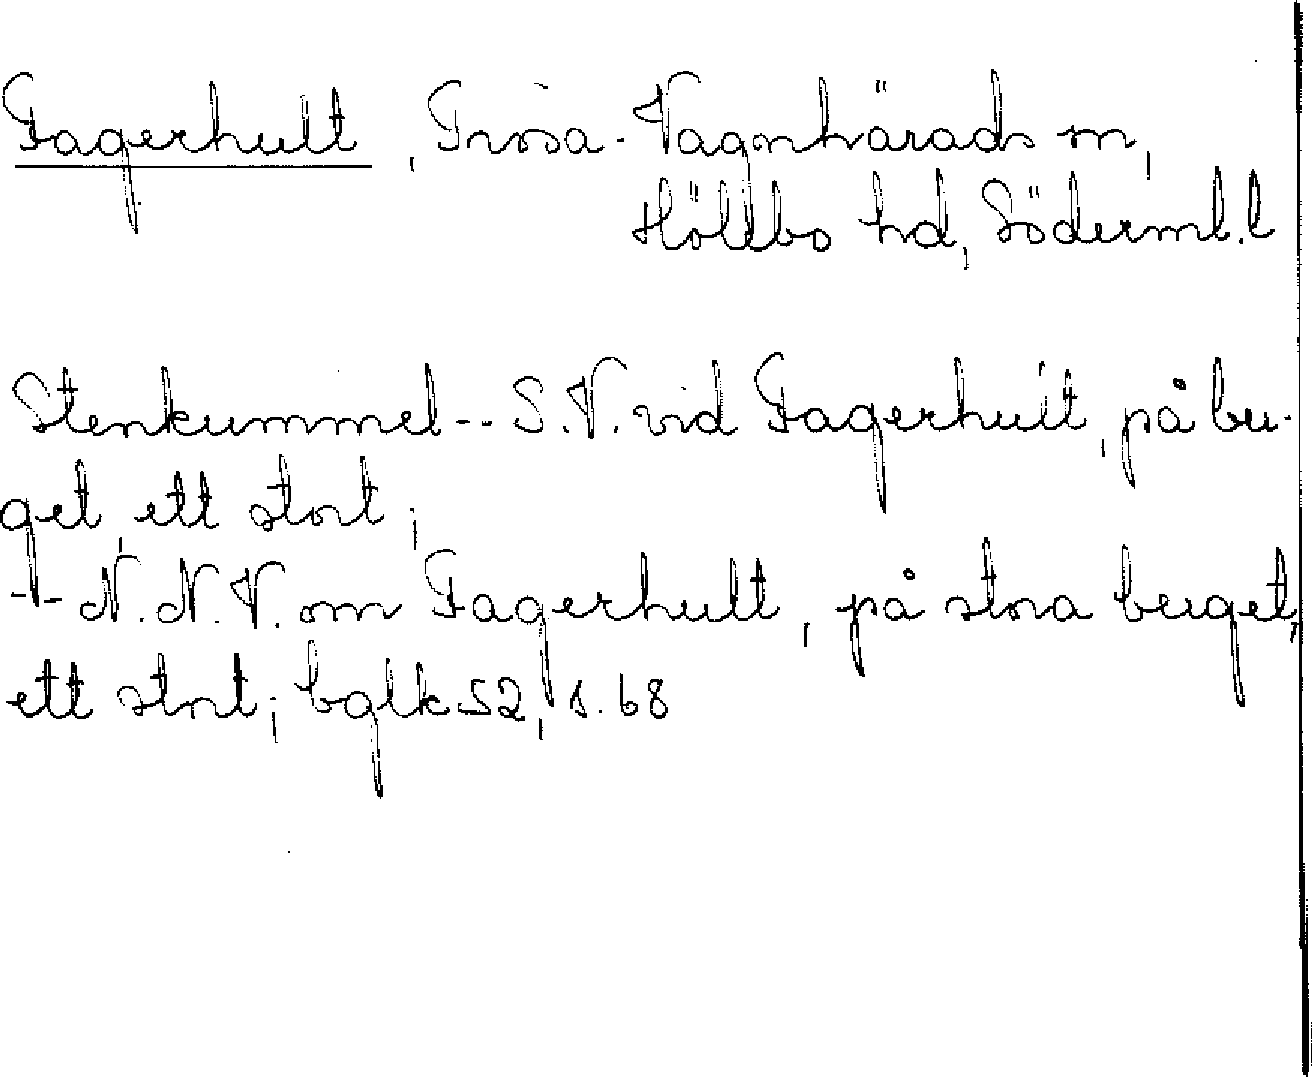 Fagerhult, Trosa-Vagnhärads sn,
Hölebo hd, Söderml. l
Stenkummel -- S.V. vid Fagerhult, på ber-
get, ett stort;
-"- N.N.V. om Fagerhult, på stora berget,
ett stort; bglk S2, s. 68